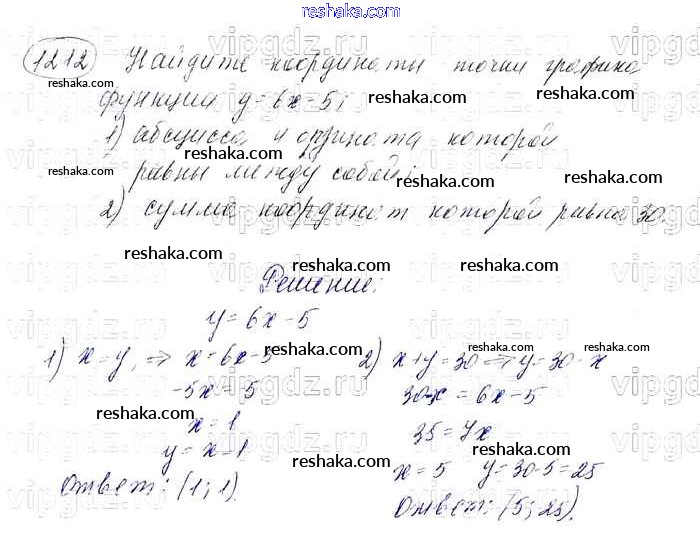 reshaka.com
1212 Найдите координаты точки графика
функции y=6x-5;
1) абсцисса и ордината которой
равны между собой;
2) сумма координат которой равна 30.
Решение:
y=6x-5
1) x=y, ⇒ x=6x-5
-5x=5
x=1
y=x-1
Ответ: (1; 1)
2) x+y=30 ⇒ y=30-x
30-x=6x-5
35=7x
x=5 y=30-5=25
Ответ: (5; 25).